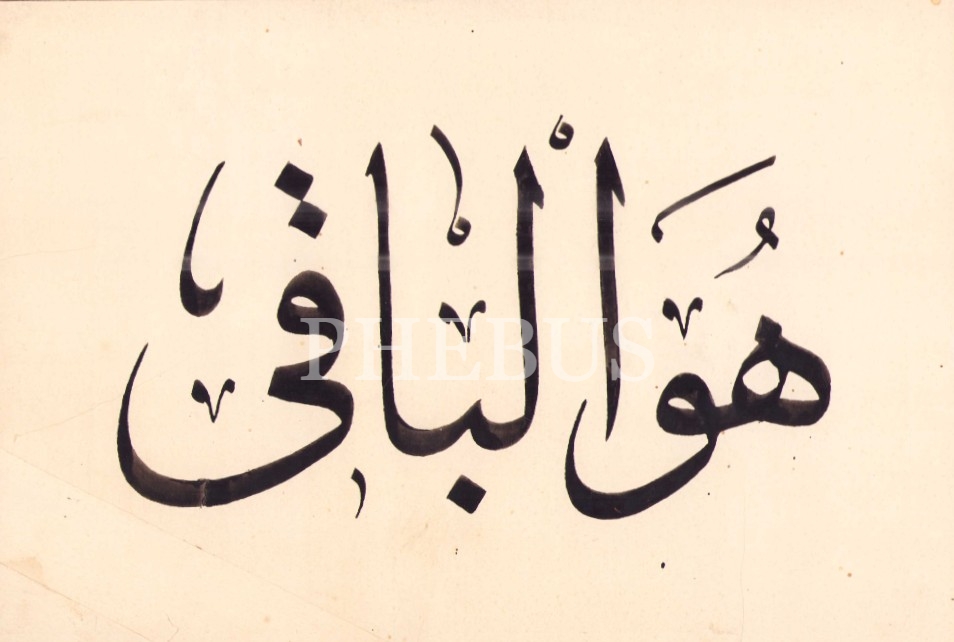 هُوَ ألباقى
PHEBUS